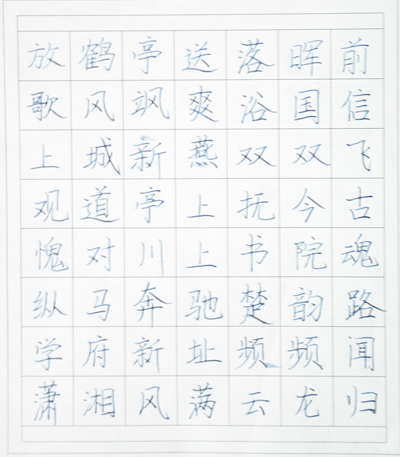 放鹤亭送落晖前
歌风飒爽浴国信
上城新燕双双飞
观道亭上抚今古
愧对川上书院魂
纵马奔驰楚韵路
学府新址频频闻
潇湘风满云龙归